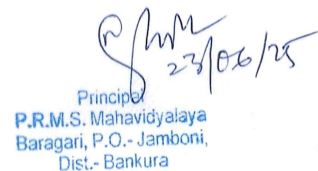 23/06/25
Principal
P.R.M.S. Mahavidyalaya
Baragari, P.O.- Jamboni,
Dist.- Bankura